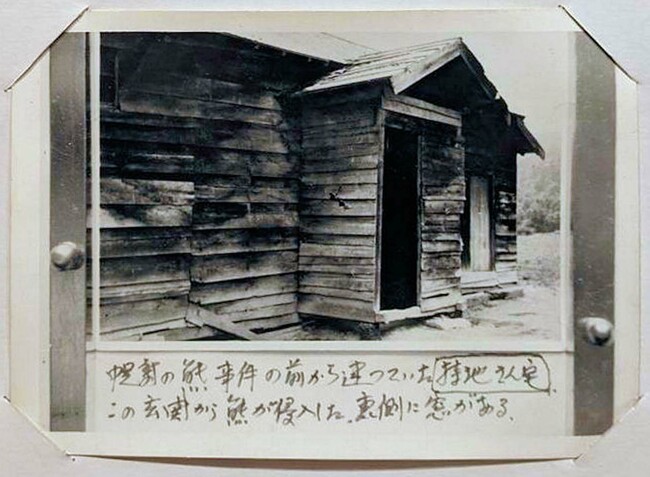 幌新の熊事件の前から建っていた持地さん宅
この玄関から熊が侵入した、裏側に窓がある、